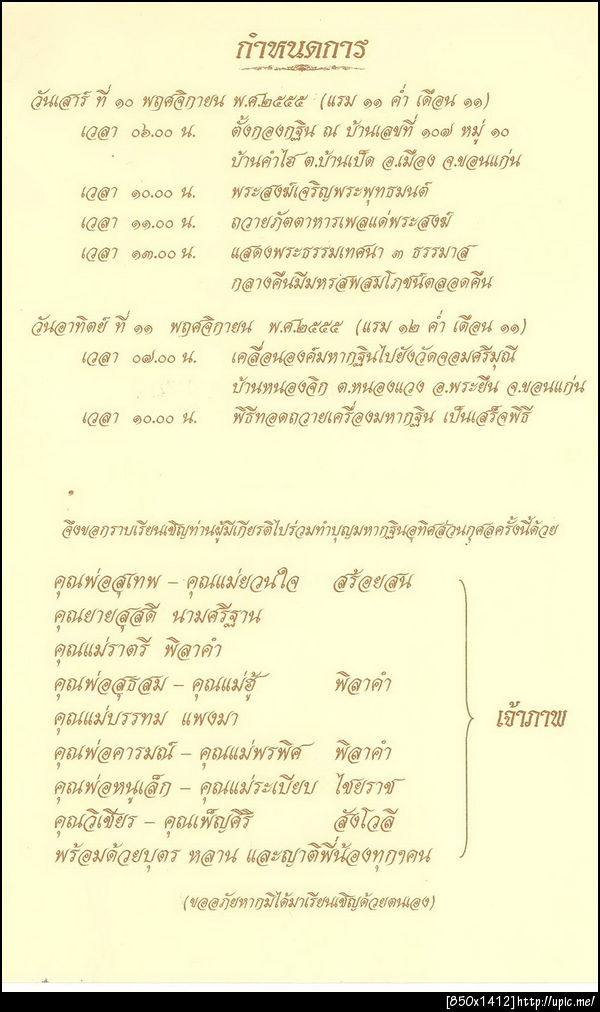 กำหนดการ
วันเสาร์ ที่ ๑๐ พฤศจิกายน พ.ศ.๒๕๕๕ (แรม ๑๑ ค่ำ เดือน ๑๑)
เวลา ๐๖.๐๐ น. ตั้งกองกฐิน ณ บ้านเลขที่ ๑๐๗ หมู่ ๑๐
บ้านคำไฮ ต.บ้านเป็ด อ.เมือง จ.ขอนแก่น
เวลา ๑๐.๐๐ น. พระสงฆ์เจริญพระพุทธมนต์
เวลา ๑๑.๐๐ น. ถวายภัตตาหารเพลแด่พระสงฆ์
เวลา ๑๓.๐๐ น. แสดงพระธรรมเทศนา ๓ ธรรมาส
กลางคืนมีมหรสพสมโภชน์ตลอดคืน
วันอาทิตย์ ที่ ๑๑ พฤศจิกายน พ.ศ.๒๕๕๕ (แรม ๑๒ ค่ำ เดือน ๑๑)
เวลา ๐๗.๐๐ น. เคลื่อนองค์มหากฐินไปยังวัดจอมศรีมุณี
บ้านหนองจิก ต.หนองแวง อ.พระยืน จ.ขอนแก่น
เวลา ๑๐.๐๐ น. พิธีทอดถวายเครื่องมหากฐิน เป็นเสร็จพิธี
จึงขอกราบเรียนเชิญท่านผู้มีเกียรติไปร่วมทำบุญมหากฐินอุทิศส่วนกุศลครั้งนี้ด้วย
คุณพ่อสุเทพ – คุณแม่ยวนใจ สร้อยสน
คุณยายสุสดี นามศรีฐาน
คุณแม่ราตรี พิลาคำ
คุณพ่อสุธสม – คุณแม่ฮู้ พิลาคำ
คุณแม่บรรทม แพงมา
เจ้าภาพ
คุณพ่อคารมณ์ – คุณแม่พรพิศ พิลาคำ
คุณพ่อหนูเล็ก – คุณแม่ระเบียบ ไชยราช
คุณวิเชียร – คุณเพ็ญศิริ สังโวลี
พร้อมด้วยบุตร หลาน และญาติพี่น้องทุกๆคน
(ขออภัยหากมิได้มาเรียนเชิญด้วยตนเอง)
[850x1412]http://upic.me/